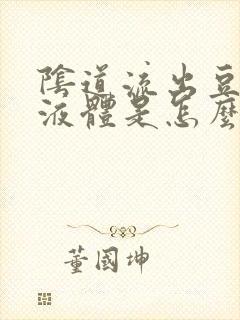 陰道流出豆
液體是怎麼
董國坤